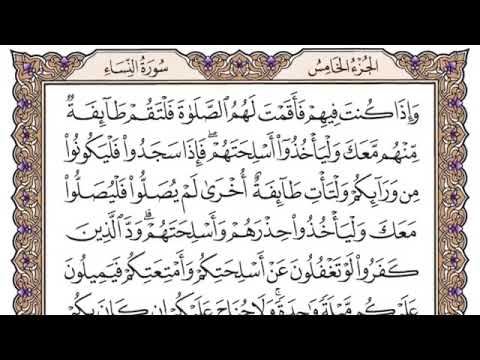 الجُزْءُ الخَامِسُ
سُورَةُ النِّسَاءِ
وَإِذَا كُنتَ فِيهِمْ فَأَقَمْتَ لَهُمُ ٱلصَّلَوٰةَ فَلْتَقُمْ طَآئِفَةٌ
مِّنْهُم مَّعَكَ وَلْيَأْخُذُوٓاْ أَسْلِحَتَهُمْۖ فَإِذَا سَجَدُواْ فَلْيَكُونُواْ
مِن وَرَآئِكُمْ وَلْتَأْتِ طَآئِفَةٌ أُخْرَىٰ لَمْ يُصَلُّواْ فَلْيُصَلُّواْ
مَعَكَ وَلْيَأْخُذُواْ حِذْرَهُمْ وَأَسْلِحَتَهُمْۗ وَدَّ ٱلَّذِينَ
كَفَرُواْ لَوْ تَغْفُلُونَ عَنْ أَسْلِحَتِكُمْ وَأَمْتِعَتِكُمْ فَيَمِيلُونَ
عَلَيْكُم مَّيْلَةً وَٰحِدَةًۚ وَلَا جُنَاحَ عَلَيْكُمْ إِن كَانَ بِكُمْ